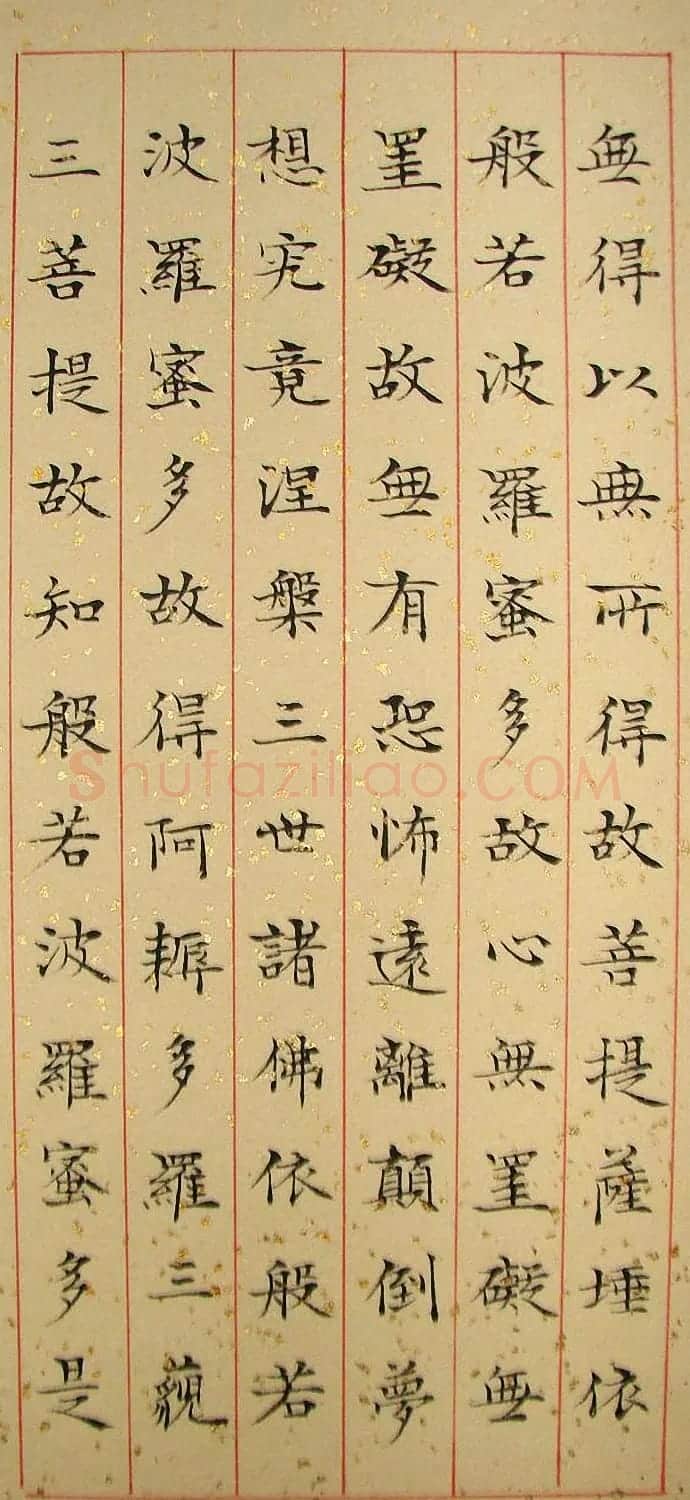 無得以無所得故菩提薩埵依
般若波羅蜜多故心無罣礙無
罣礙故無有恐怖遠離顛倒夢
想究竟涅槃三世諸佛依般若
波羅蜜多故得阿耨多羅三藐
三菩提故知般若波羅蜜多是
Shufaziliao.COM